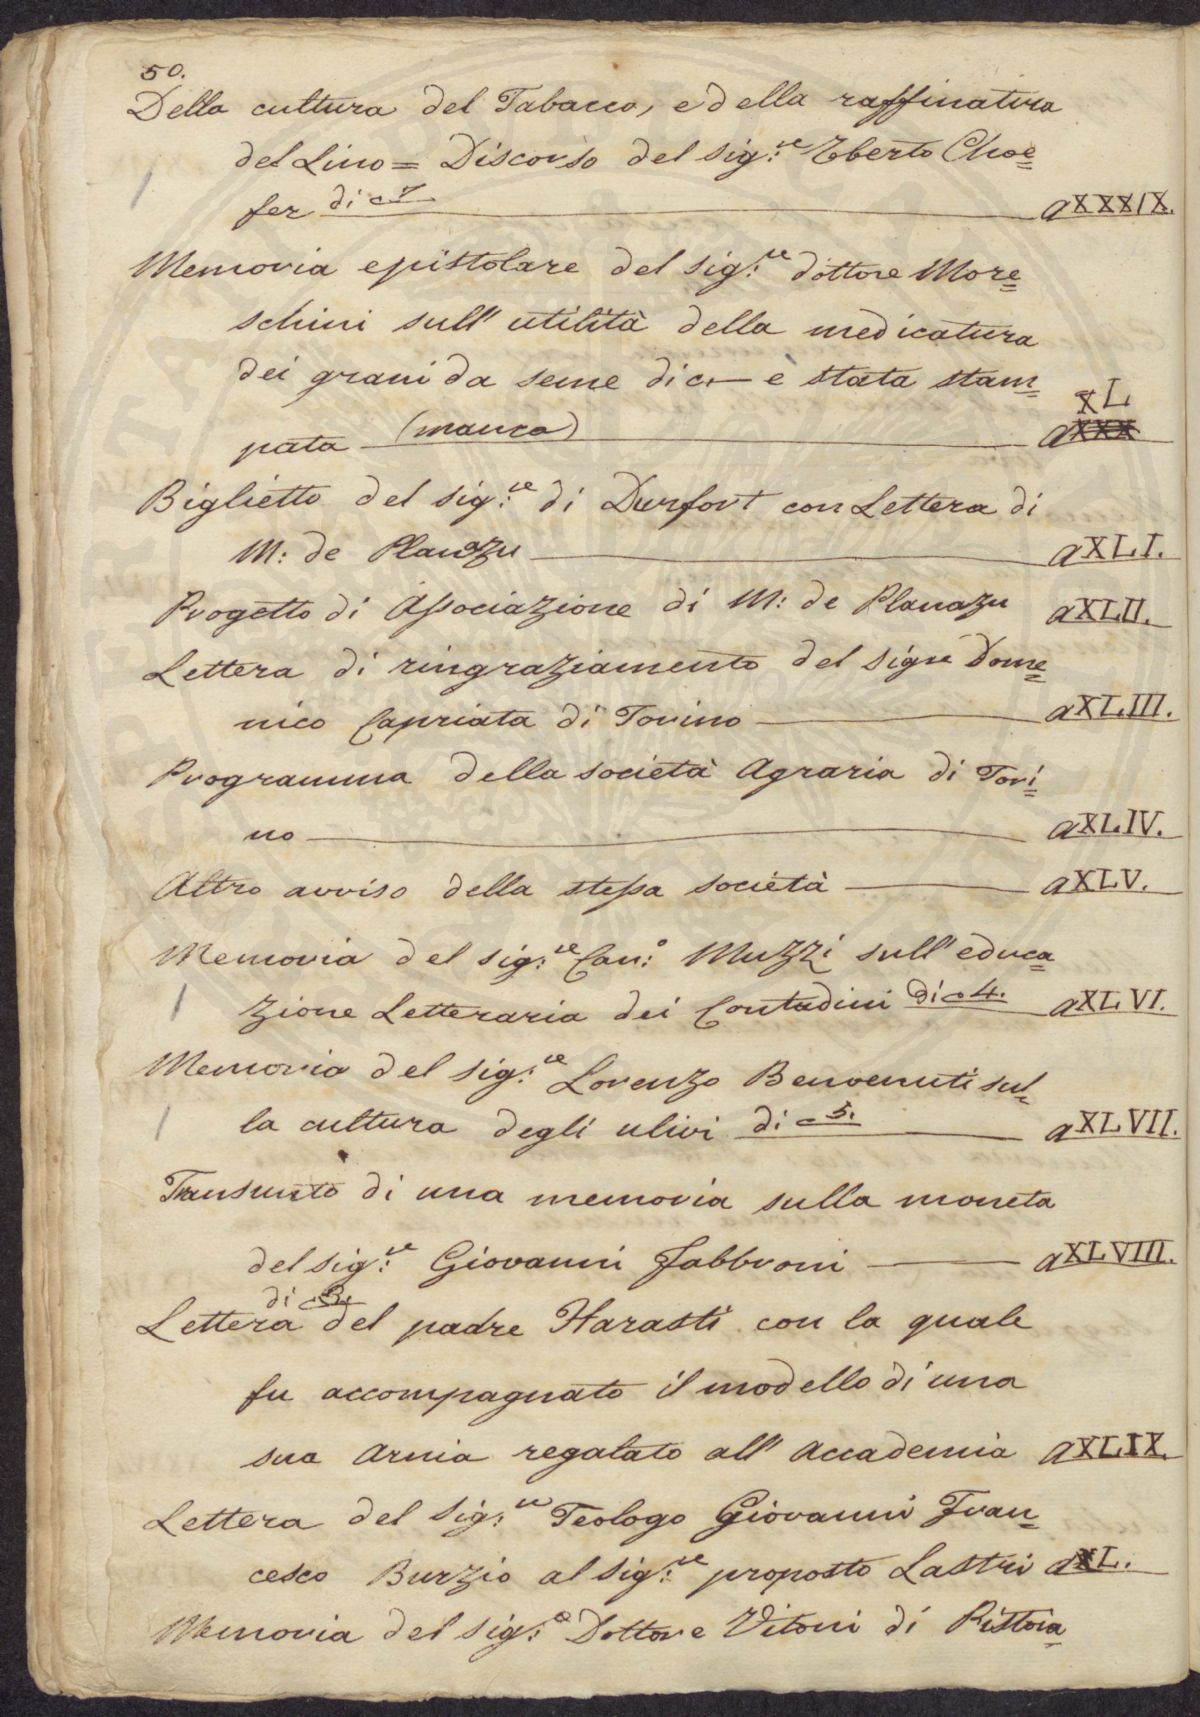 50.
Della cultura del Tabacco, e della raffinatura
del Lino = Discorso del sig:re Eberto Choe=
fer di c 7 aXXXIX.
Memoria epistolare del sig:re dottore More=
schini sull' utilità della medicatura
dei grani da seme di c+ è stata stam=
pata (manca) aXXX XL
Biglietto del sig:re di Durfort con Lettera di
M: de Planazu aXLI.
Progetto di Associazione di M: de Planazu aXLII.
Lettera di ringraziamento del signe Dome=
nico Capriata di Torino aXLIII.
Programma della società Agraria di Tori=
no aXLIV.
Altro avviso della stessa società aXLV.
Memoria del sig:re Can:o Muzzi sull' educa=
zione Letteraria dei Contadini di c 4. aXLVI.
Memoria del sig:re Lorenzo Benvenuti sul=
la cultura degli ulivi di c 5. aXLVII.
Transunto di una memoria sulla moneta
del sig:re Giovanni Fabbroni aXLVIII.
di c 3.
Lettera del padre Harasti con la quale
fu accompagnato il modello di una
sua Arnia regalato all' Accademia aXLIX.
Lettera del sig:re Teologo Giovanni Fran=
cesco Burzio al sig:re proposto Lastri aXL.
Memoria del sig:e Dottore Vitoni di Pistoia=